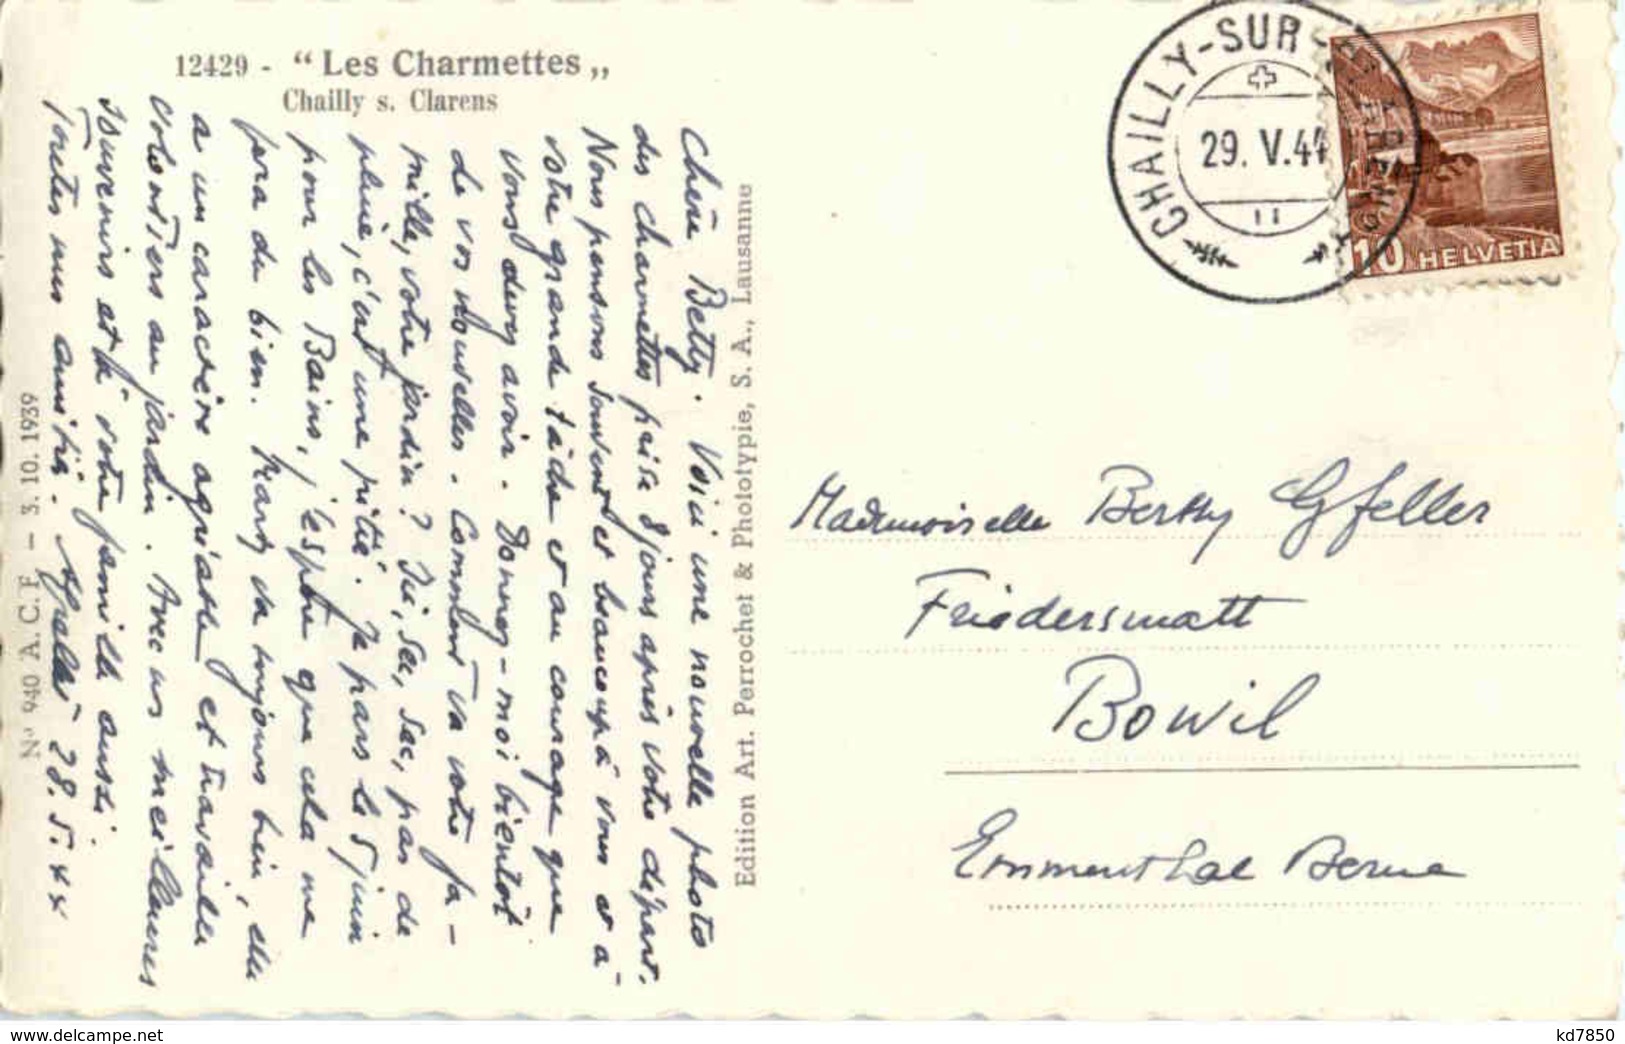 12429 - “ Les Charmettes „
Chailly s. Clarens
Chère Betty. Voici une nouvelle photo
des Charmettes prise 8 jours après votre départ.
Nous pensons souvent et beaucoup à vous et à
votre grande tâche et au courage que
vous devez avoir. Donnez-moi bientôt
de vos nouvelles. Comment va votre fa-
mille, votre jardin? Ici, sec, sec, pas de
pluie, c'est une pitié. Je pars le 5 juin
pour les Bains, j'espère que cela me
fera du bien. va toujours bien, elle
a un caractère agréable et travaille
volontiers au jardin. Avec nos meilleures
souvenirs et à votre famille aussi
toutes nos amitiés. 28.5.44
Edition Art. Perrochet & Phototypie, S. A., Lausanne
No 940 A. C. F. – 3. 10. 1939
CHAILLY-SUR-CLARENS
29. V. 44
10 HELVETIA
Mademoiselle Berthy Gfeller
Friedersmatt
Bowil
Emmenthal Berne
www.delcampe.net
kd7850